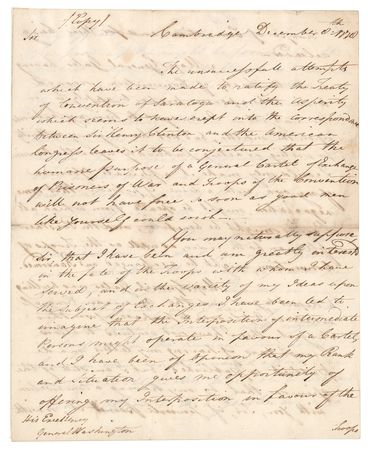 (Copy)
Sir Cambridge December 8th 1778
The unsuccessfull attempts
which have been made to ratify the Treaty
of Convention of Saratoga and the asperity
which seems to have crept into the correspondence
between Sir Henry Clinton and the American
Congress leaves it to be conjectured that the
humane purpose of a General Cartel of Exchange
of Prisoners of War and Troops of the Convention
will not have force so soon as good men
like yourself could wish.
You may naturally suppose
Sir, that I have been and am greatly interested
in the fate of the Troops with whom I have
served, and in the variety of my Ideas upon
the subject of Exchanges I have been led to
imagine that the Interposition of intermediate
Persons might operate in favour of a Cartel
and I have been of opinion that my Rank
and situation gives me opportunity of
offering my Interposition in favour of the
His Excellency
General Washington
Troops